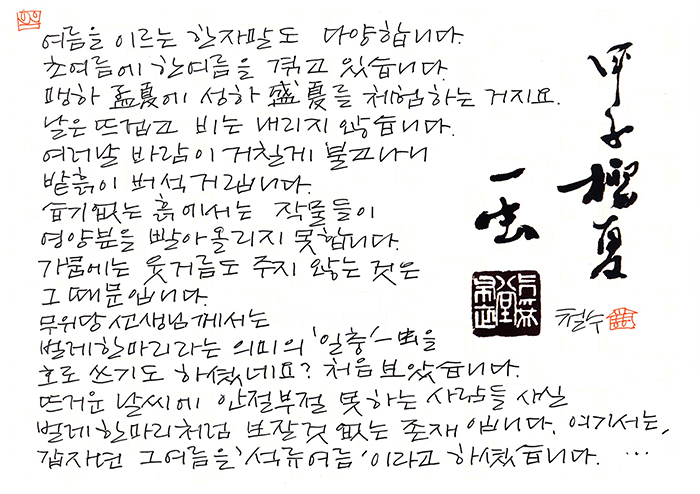 여름을 이르는 한자말도 다양합니다.
초여름에 한여름을 겪고 있습니다.
맹하 孟夏에 성하 盛夏를 체험하는 거지요.
날은 뜨겁고 비는 내리지 않습니다.
여러날 바람이 거칠게 불고나니
밭흙이 버석거립니다.
습기없는 흙에서는 작물들이
영양분을 빨아올리지 못합니다.
가뭄에는 웃거름도 주지 않는 것은
그 때문입니다.
무위당 선생님께서는
벌레한마리라는 의미의 '일충'一虫을
호로 쓰기도 하셨네요? 처음 보았습니다.
뜨거운 날씨에 안절부절 못하는 사람들 사실
벌레 한마리처럼 보잘것 없는 존재입니다. 여기서는,
갑자년 그여름을 '석류여름'이라고 하셨습니다. …
甲子榴夏
一虫
철수